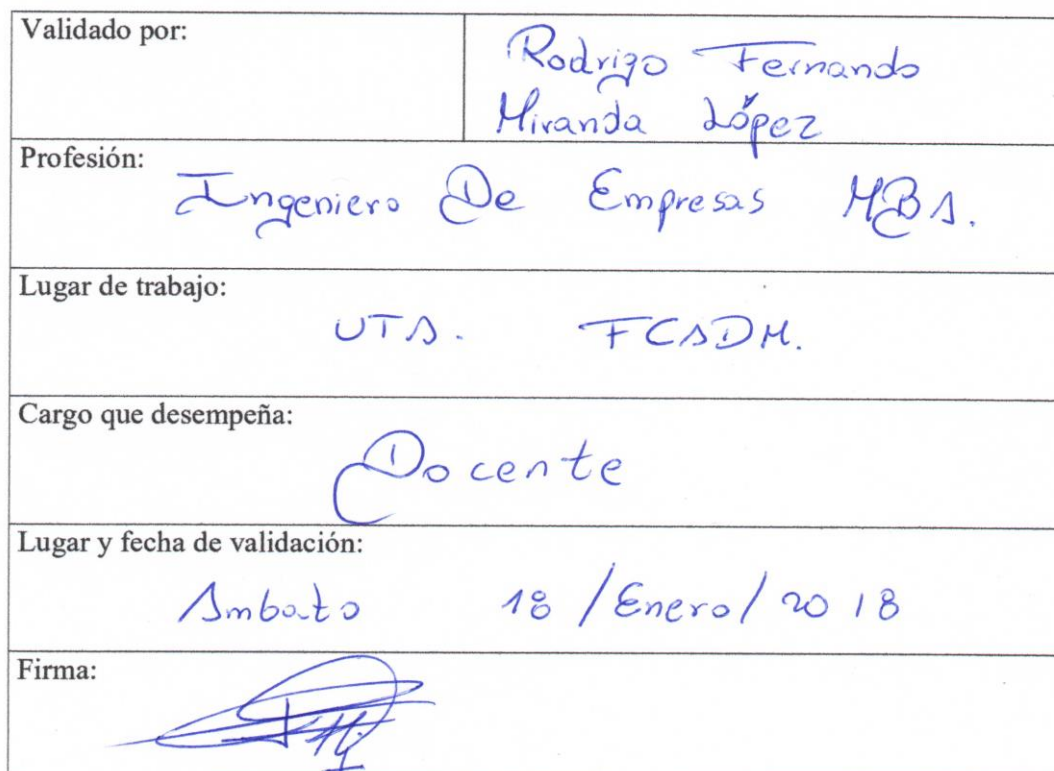 Validado por:
Rodrigo Fernando
Miranda López
Profesión:
Ingeniero De Empresas MBA.
Lugar de trabajo:
UTA. FCADM.
Cargo que desempeña:
Docente
Lugar y fecha de validación:
Ambato 18 /Enero/ 2018
Firma: